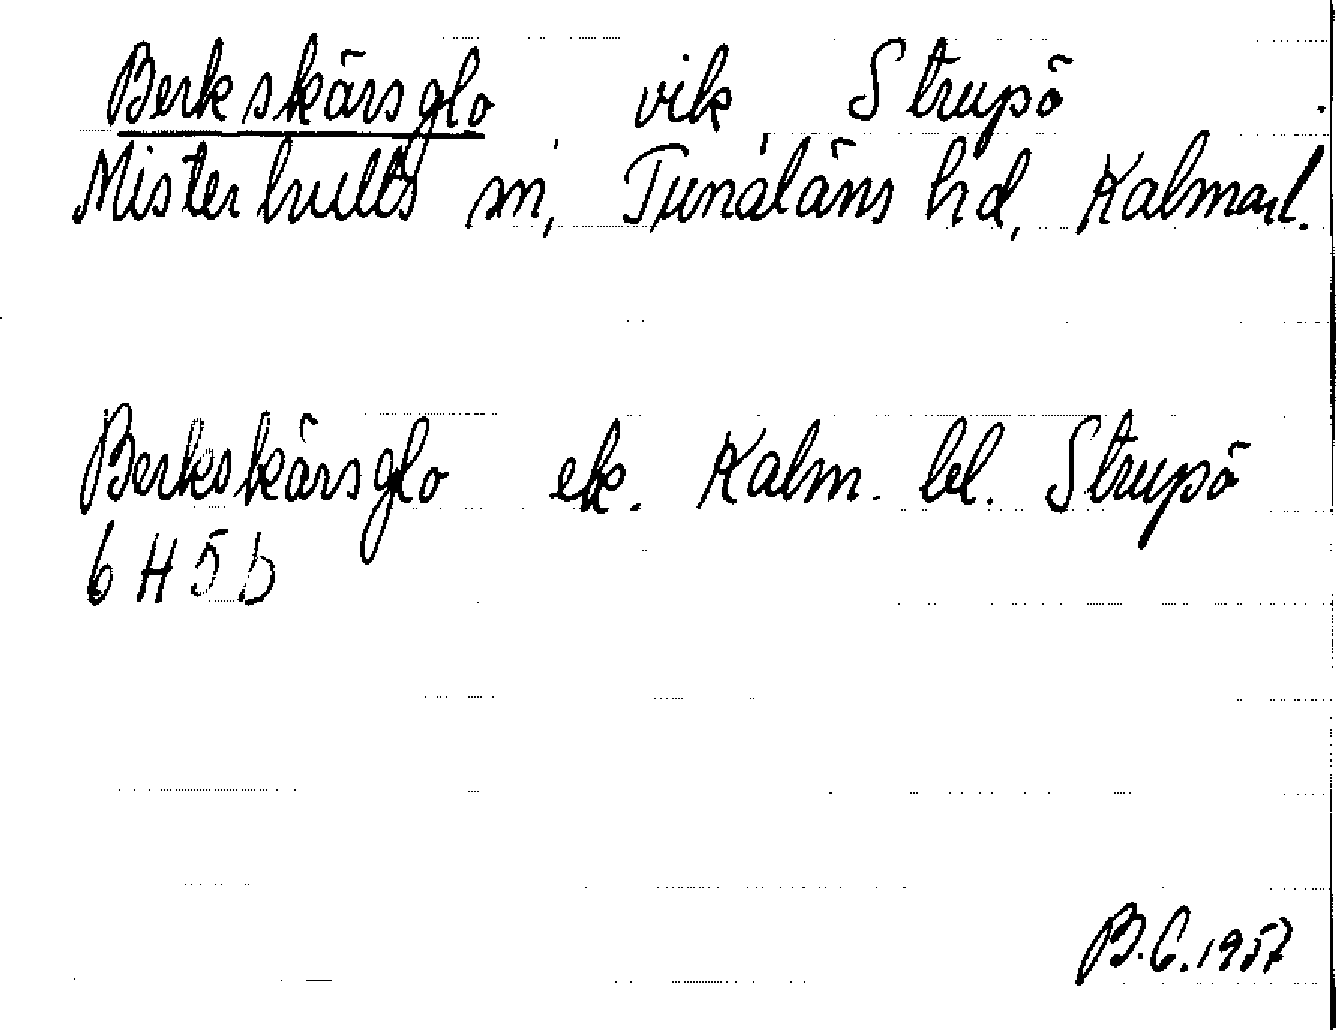 Berkskärsglo vik Strupö
Misterhults sn, Tunaläns hd, Kalmar l.
Berkskärsglo ek. Kalm. bl. Strupö
6 H 5 b
B.C. 1957